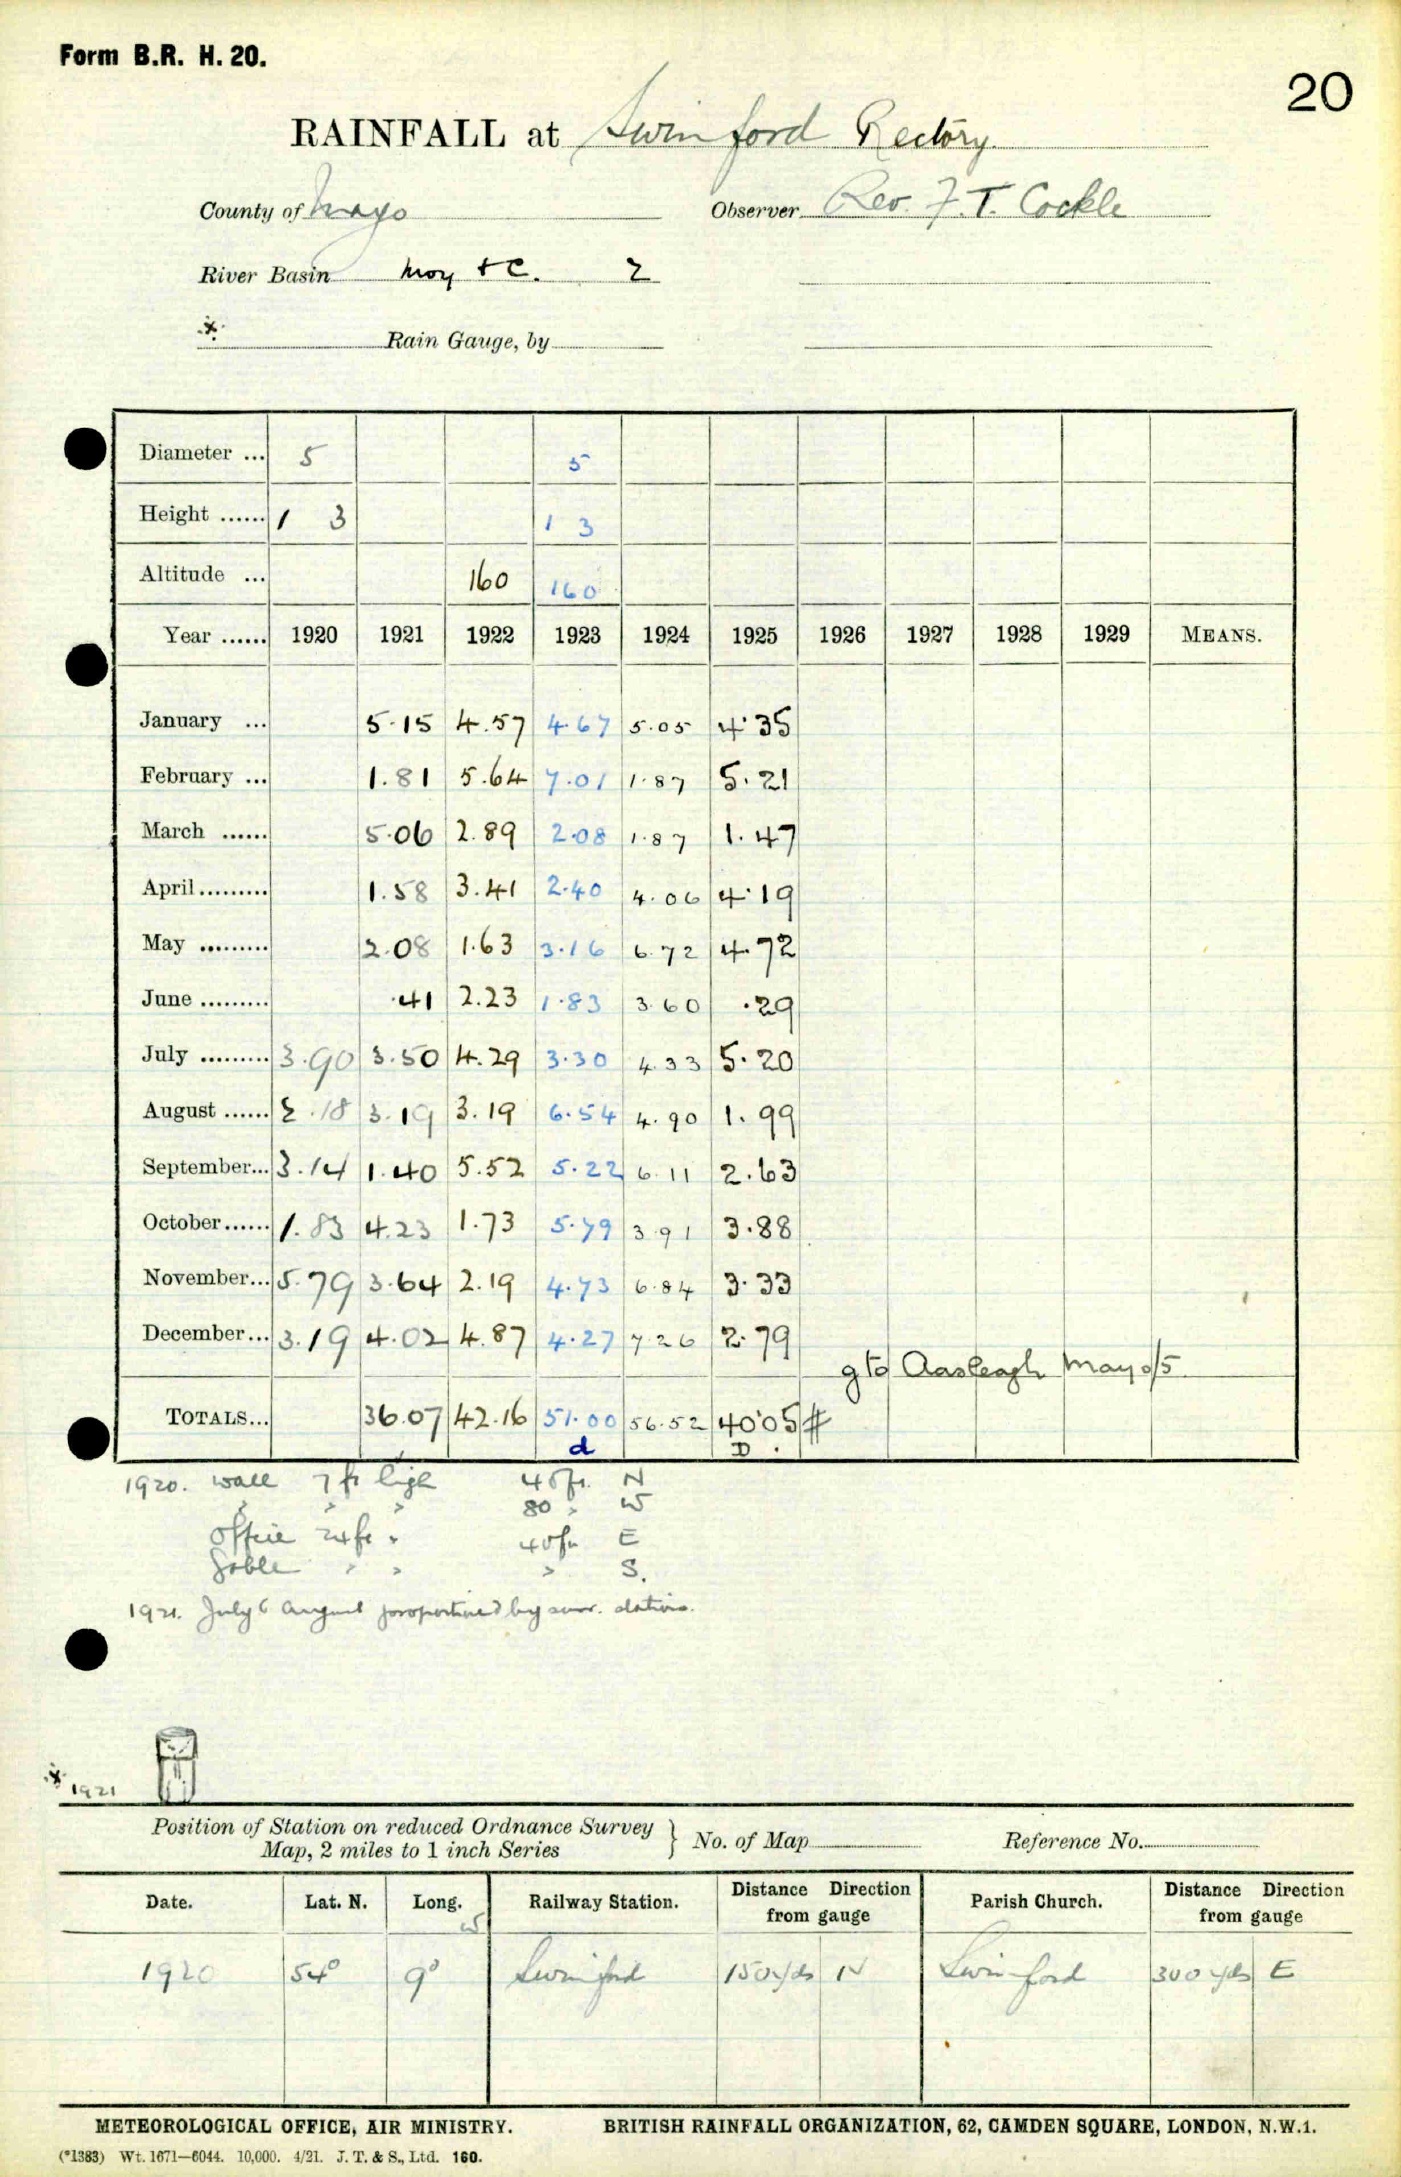 Form B.R. H. 20.
20
RAINFALL at Swinford Rectory
County of Mayo Observer Rev. F. T. Cockle
River Basin Moy & C. 2
* Rain Gauge, by
Diameter ... 5 5
Height ...... 1 3 1 3
Altitude ... 160 160
Year ...... 1920 1921 1922 1923 1924 1925 1926 1927 1928 1929 MEANS.
January ... 5.15 4.57 4.67 5.05 4.35
February ... 1.81 5.64 7.01 1.87 5.21
March ...... 5.06 2.89 2.08 1.87 1.47
April ......... 1.58 3.41 2.40 4.06 4.19
May ......... 2.08 1.63 3.16 6.72 4.72
June ......... .41 2.23 1.83 3.60 .29
July ......... 3.90 3.50 4.29 3.30 4.33 5.20
August ...... 2.18 3.19 3.19 6.54 4.90 1.99
September... 3.14 1.40 5.52 5.22 6.11 2.63
October...... 1.83 4.23 1.73 5.79 3.91 3.88
November... 5.79 3.64 2.19 4.73 6.84 3.33
December... 3.19 4.02 4.87 4.27 7.26 2.79
g to Aasleagh Mayo/5
TOTALS... 36.07 42.16 51.00 56.52 40.05 #
d D
1920. Wall 7 ft high 45 ft. N
" " " 80 " W
Office 24 ft " 40 ft E
Gable " " " S.
1921. July & August proportioned by surr. stations.
* 1921
Position of Station on reduced Ordnance Survey
Map, 2 miles to 1 inch Series } No. of Map Reference No.
Date. Lat. N. Long. W Railway Station. Distance Direction from gauge Parish Church. Distance Direction from gauge
1920 54° 9° Swinford 150 yds N Swinford 300 yds E
METEOROLOGICAL OFFICE, AIR MINISTRY. BRITISH RAINFALL ORGANIZATION, 62, CAMDEN SQUARE, LONDON, N.W.1.
(*1383) Wt. 1671—6044. 10,000. 4/21. J. T. & S., Ltd. 160.